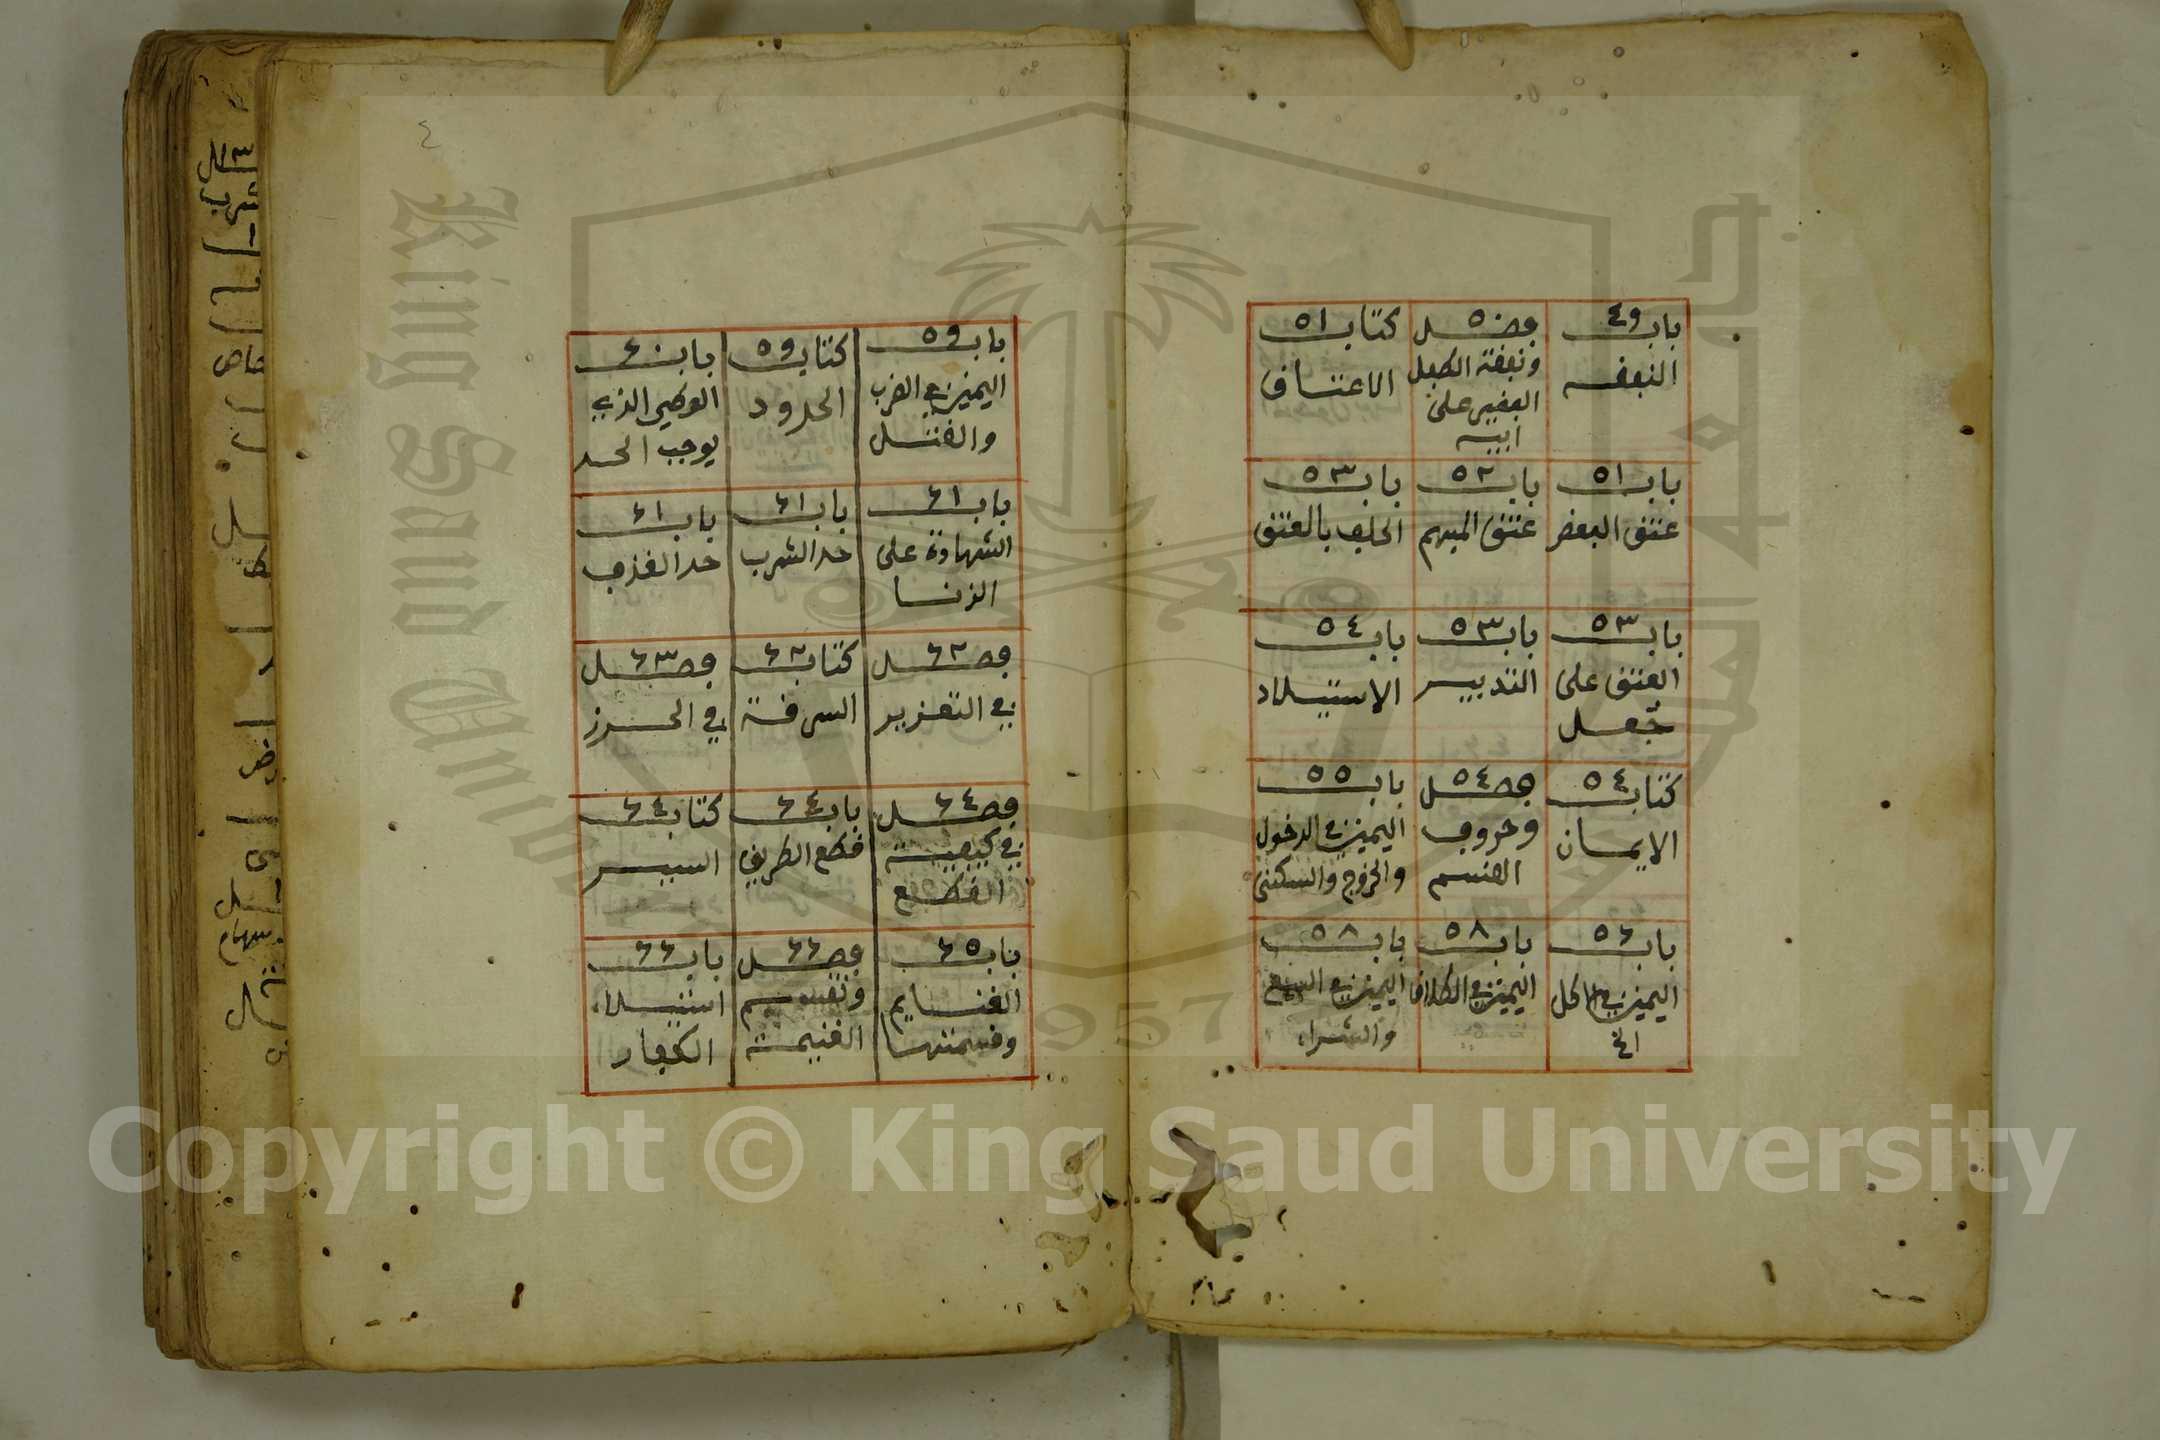 باب ٤٩
النفقه
فصل ٥٠
ونفقة الطفل
الفقير على
ابيه
كتاب ٥١
الاعتاق
باب ٥١
عتق البعض
باب ٥٢
عتق المبهم
باب ٥٣
الحلف بالعتق
باب ٥٣
العتق على
جُعل
باب ٥٣
التدبير
باب ٥٤
الاستيلاد
كتاب ٥٤
الايمان
فصل ٥٤
وحروف
القسم
باب ٥٥
اليمين في الدخول
والخروج والسكنى
باب ٥٦
اليمين في الاكل
الخ
باب ٥٨
اليمين في الكلام
باب ٥٨
اليمين في البيع
والشراء
٤
باب ٥٩
اليمين في الضرب
والقتل
كتاب ٥٩
الحدود
باب ٦٠
الوطي الذي
يوجب الحد
باب ٦١
الشهادة على
الزنا
باب ٦١
حد الشرب
باب ٦١
حد القذف
فصل ٦٢
في التعزير
كتاب ٦٢
السرقة
فصل ٦٣
في الحرز
فصل ٦٤
في كيفية
القطع
باب ٦٤
قطع الطريق
كتاب ٦٤
السير
باب ٦٥
الغنايم
وقسمتها
فصل ٦٦
وتقسم
الغنيمة
باب ٦٦
استيلاء
الكفار
King Saud University
1957
Copyright © King Saud University